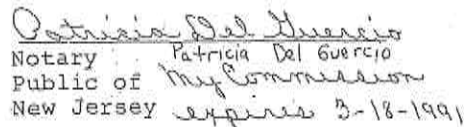 Patricia Del Guercio
Notary Patricia Del Guercio
Public of My Commission
New Jersey expires 3-18-1991